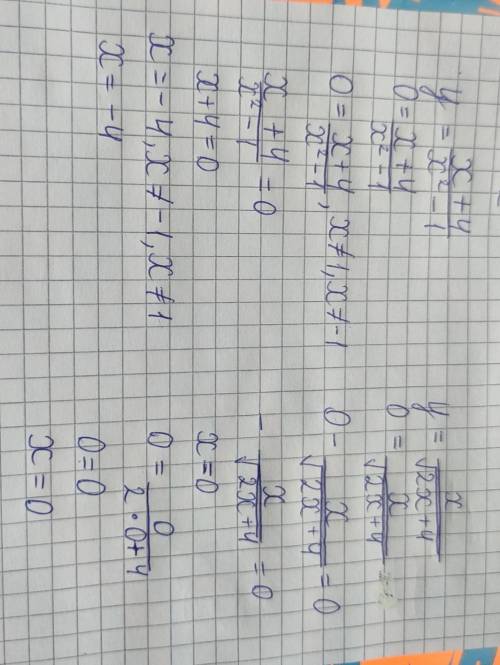 y = x+4/x²-1
0 = x+4/x²-1
0 = x+4/x²-1, x≠1, x≠-1
x+4/x²-1 = 0
x+4=0
x = -4, x≠-1, x≠1
x = -4
y = x/√2x+4
0 = x/√2x+4
0 - x/√2x+4 = 0
- x/√2x+4 = 0
x=0
0 = 0/2·0+4
0=0
x=0